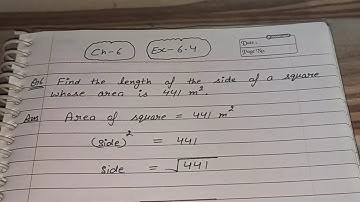 Ch-6 Ex-6.4 Date:
Page No.
Q=6 Find the length of the side of a square
whose area is 441 m².
Ans Area of square = 441 m²
(side)² = 441
side = √441